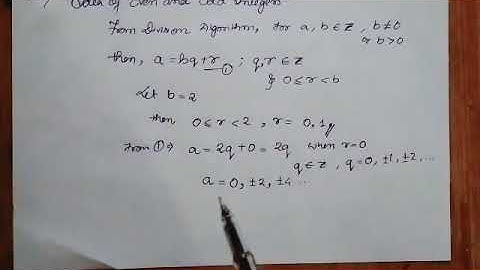 Idea of Even and Odd Integers
From Division Algorithm, for a, b ∈ Z, b ≠ 0
or b > 0
then, a = bq + r ①; q, r ∈ Z
& 0 ≤ r < b
Let b = 2
then 0 ≤ r < 2, r = 0, 1
From ① ⇒ a = 2q + 0 = 2q when r = 0
q ∈ Z, q = 0, ±1, ±2, ...
a = 0, ±2, ±4 ...